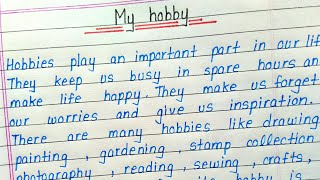 My hobby
Hobbies play an important part in our lif
They keep us busy in spare hours an
make life happy. They make us forget
our worries and give us inspiration.
There are many hobbies like drawing
painting, gardening, stamp collection
photography, reading, sewing, crafts,
hobby is